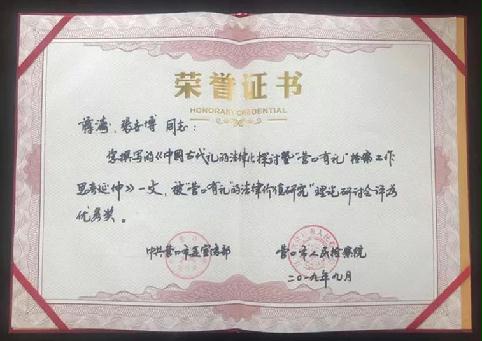 荣誉证书
HONORARY CREDENTIAL
同志：
您撰写的《中国古代礼的法律化探讨暨“营口有礼”检察工作
思考延伸》一文，被“营口有礼”的法律价值研究”理论研讨会评为
优秀奖。
中共营口市委宣传部 营口市人民检察院
二〇一九年九月